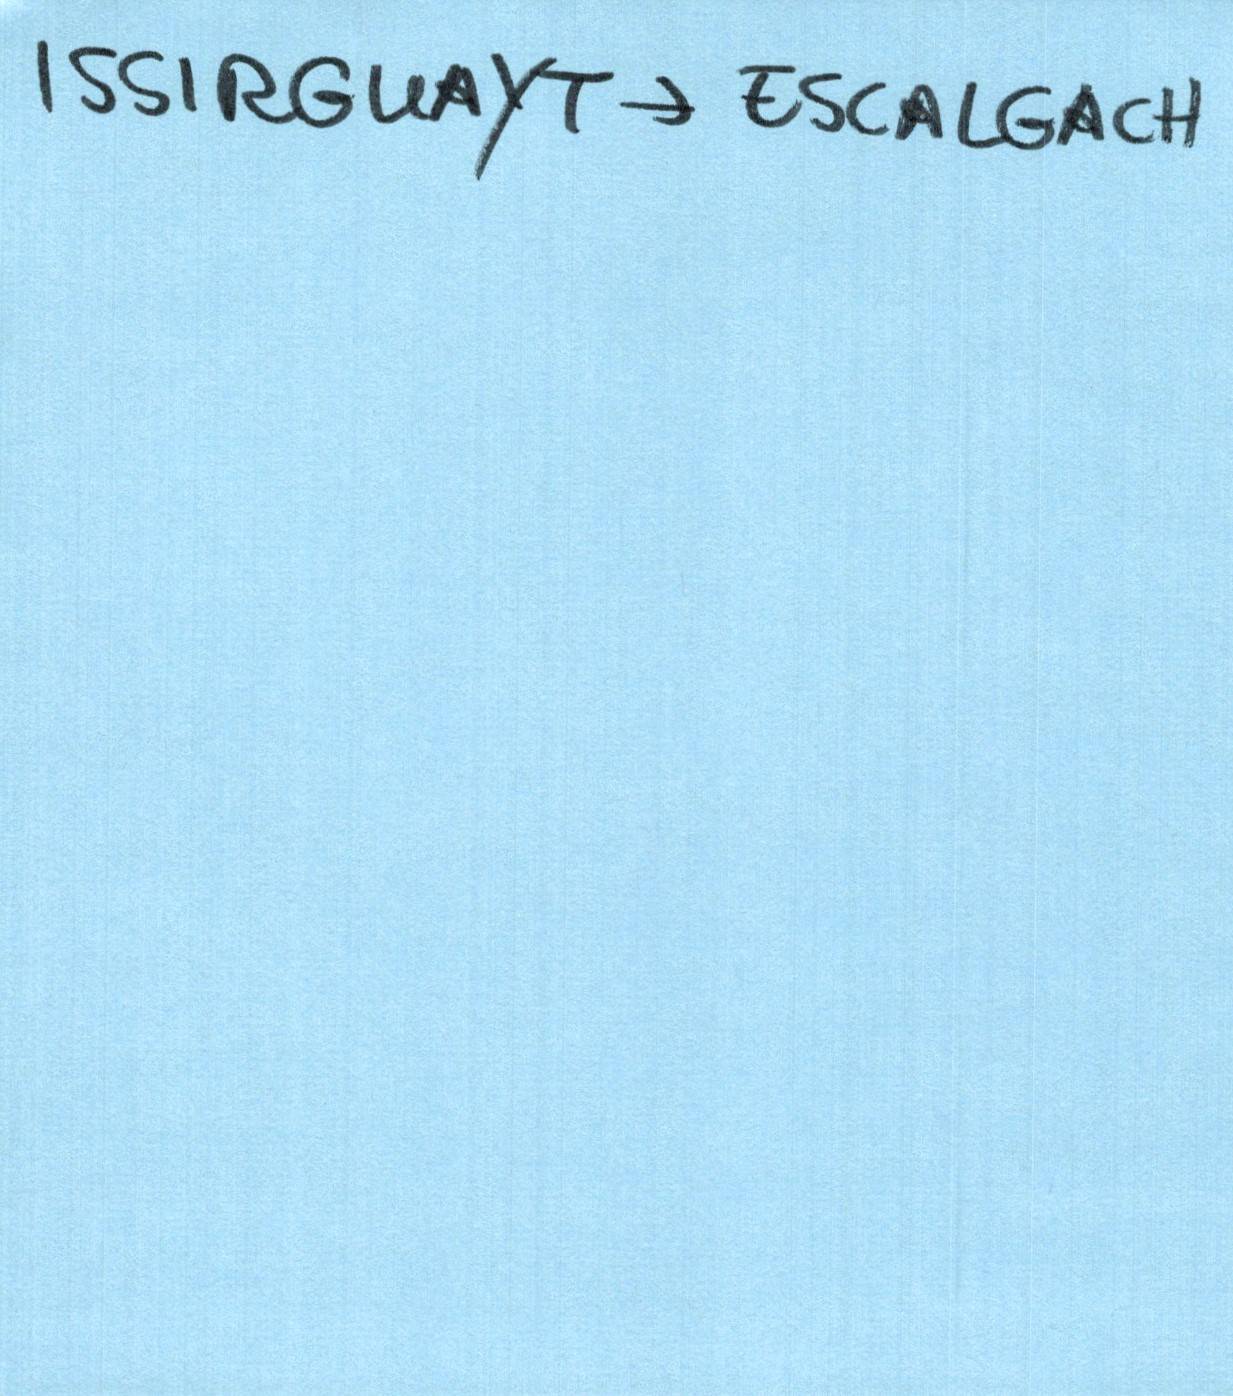 ISSIRGUAYT → ESCALGACH